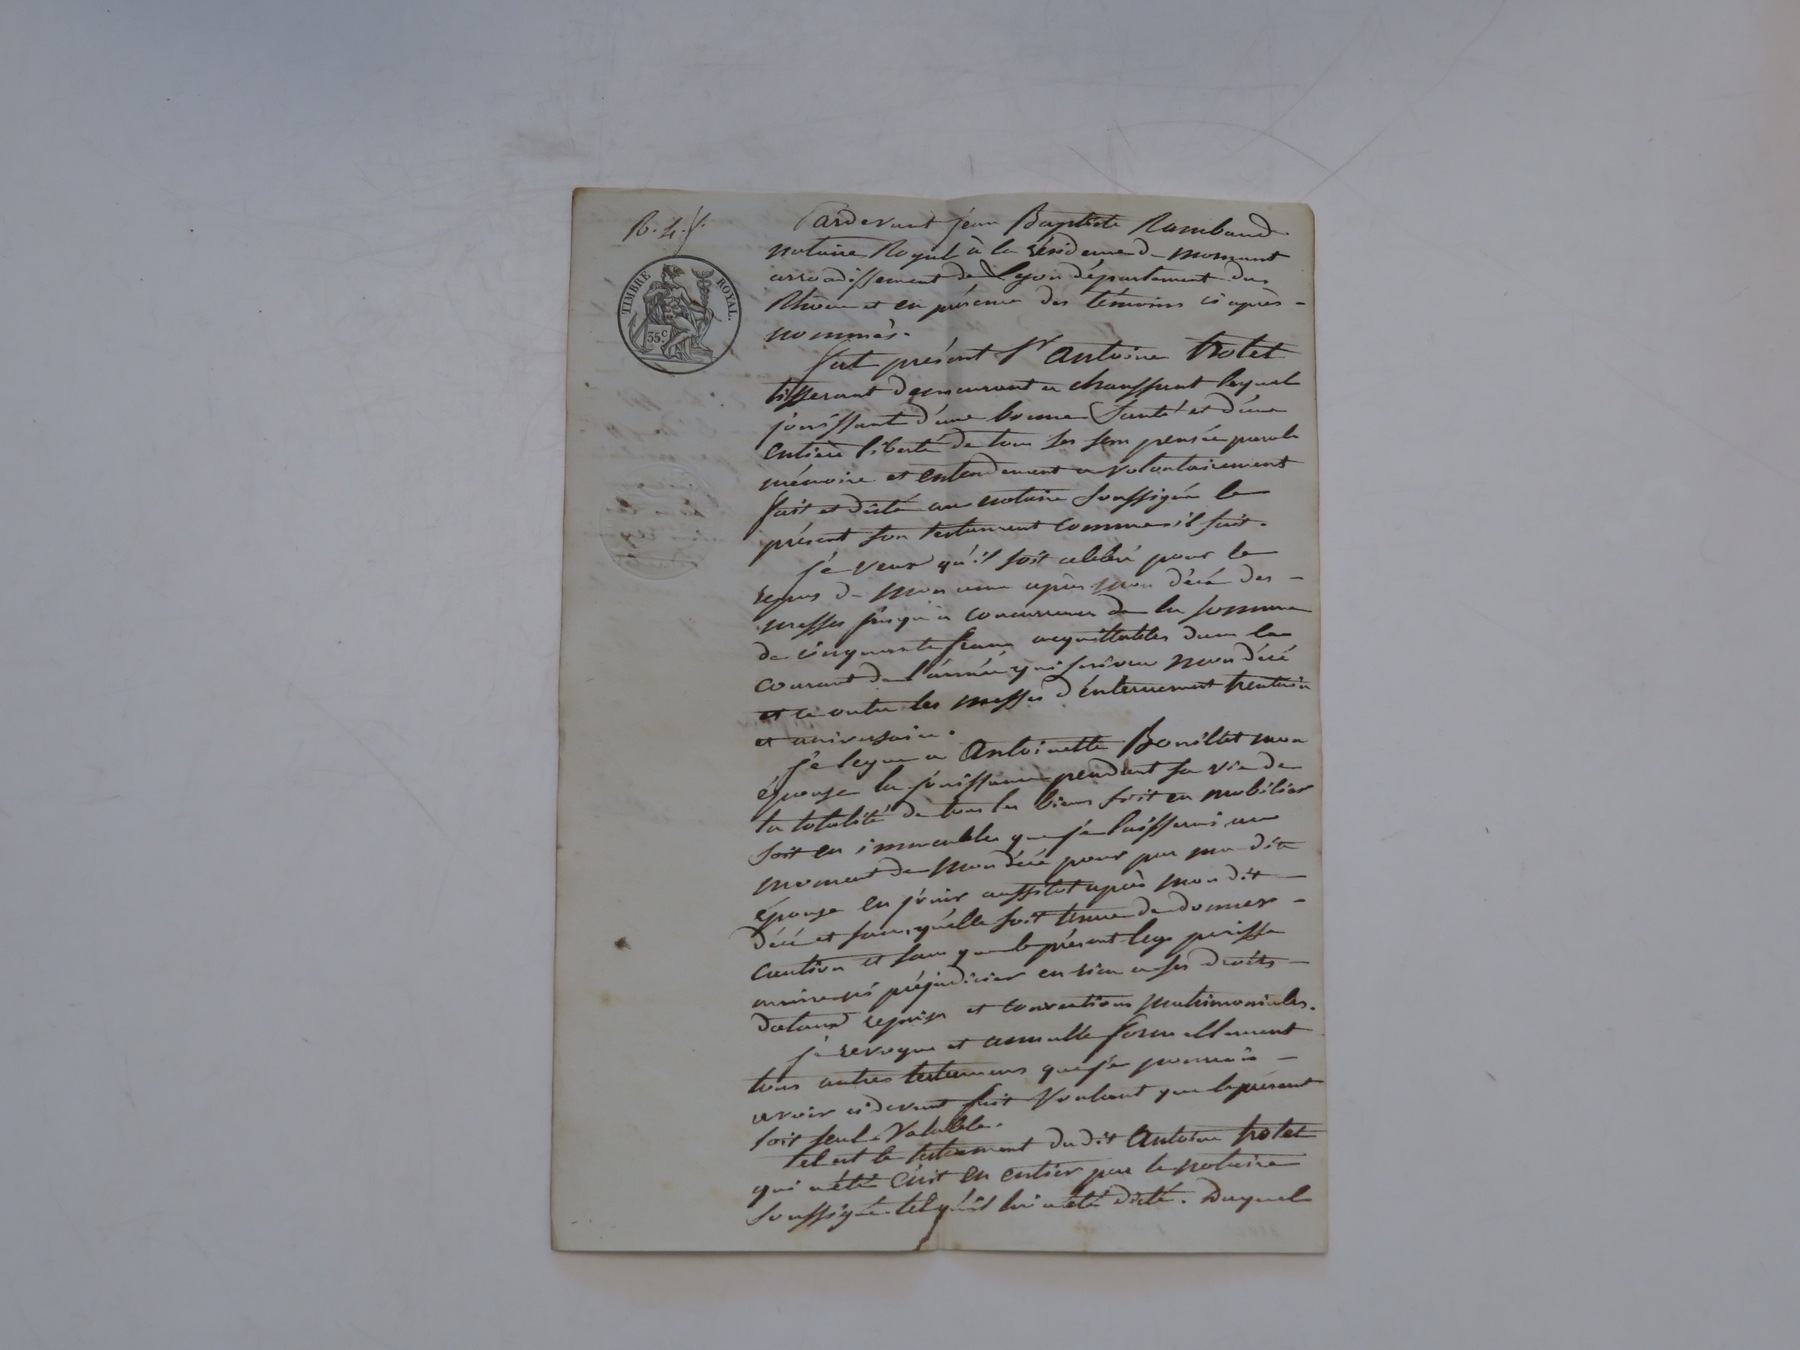 R. 4 f.
TIMBRE ROYAL.
35 c
Pardevant jean Baptiste Rambaud
notaire Royal à la résidence de mornant
arrondissement de Lyon département du
Rhône et en présence des témoins ci après
nommés.
fut présent Sr Antoine trolet
tisserant demeurant a chaussant lequel
jouissant d'une bonne Santé et d'une
entiere liberté de tous ses sens pensée parole
mémoire et entendement a volontairement
fait et dicté au notaire soussigné le
présent son testament comme il suit.
je veux qu'il soit célébré pour le
repos de mon ame après mon décé des
messes jusqu'a concurrence de la somme
de cinquante francs acquittables dans le
courant de l'année qui suivera mon décé
et ce outre les messes d'enterrement trentain
et aniversaire.
je legue a Antoinette Bouillet mon
épouse la jouissance pendant sa vie de
la totalité de tous les biens soit en mobilier
soit en immeubles que je laisserai au
moment de mon décé pour par ma dite
épouse en jouir aussitot après mon dit
décé et sans qu'elle soit tenue de donner
caution et sans que le présent legs puisse
nuire ni préjudicier en rien a ses droits
dotaux reprises et conventions matrimoniales.
je revoque et annulle formellement
tous autres testamens que je pourrais
avoir cidevant fait Voulant que le présent
soit seul Valable.
tel est le testament du dit Antoine trolet
qui a été écrit en entier par le notaire
soussigné tel qu'il lui a été dicté. Duquel